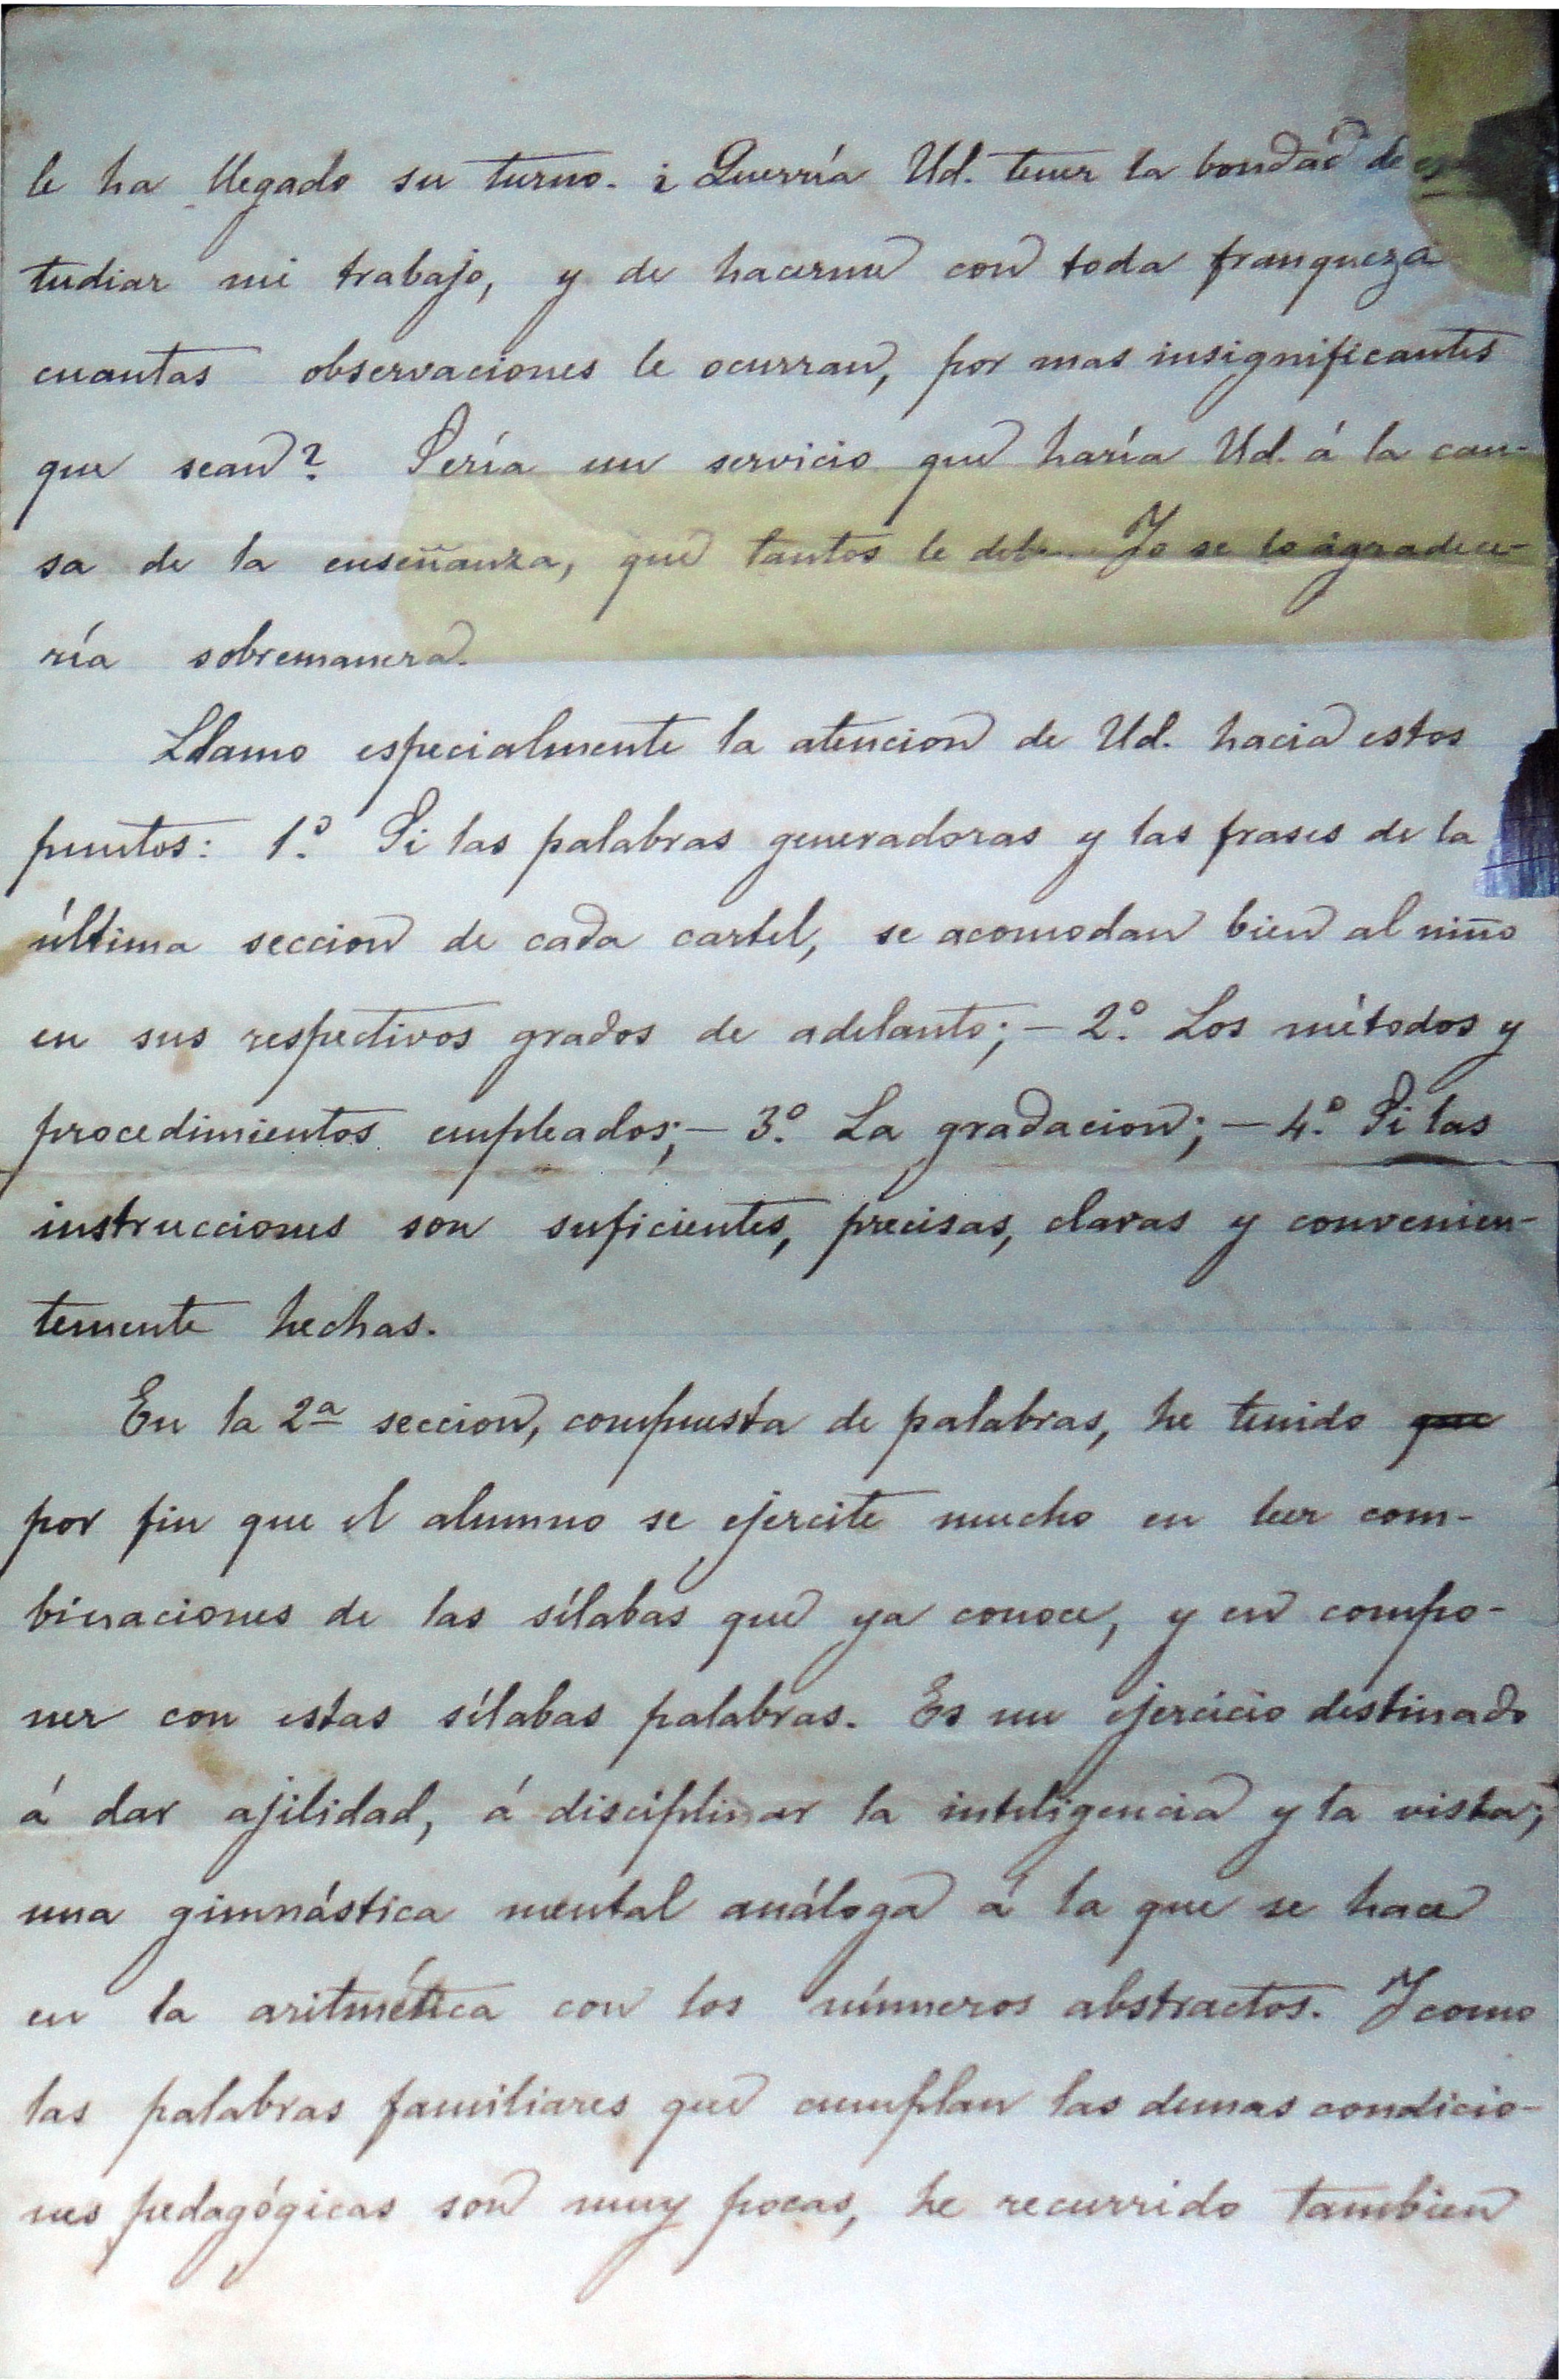 le ha llegado su turno. ¿Querría Ud. tener la bondad de es
tudiar mi trabajo, y de hacerme con toda franqueza
cuantas observaciones le ocurran, por mas insignificantes
que sean? Sería un servicio que haría Ud. á la cau-
sa de la enseñanza, que tantos le debe. Yo se lo agradece-
ría sobremanera.
Llamo especialmente la atencion de Ud. hacia estos
puntos: 1.º Si las palabras generadoras y las frases de la
última seccion de cada cartel, se acomodan bien al niño
en sus respectivos grados de adelanto; — 2.º Los métodos y
procedimientos empleados; — 3.º La gradacion; — 4.º Si las
instrucciones son suficientes, precisas, claras y convenien-
temente hechas.
En la 2ª seccion, compuesta de palabras, he tenido que
por fin que el alumno se ejercite mucho en leer com-
binaciones de las sílabas que ya conoce, y en compo-
ner con estas sílabas palabras. Es un ejercicio destinado
á dar ajilidad, á disciplinar la inteligencia y la vista;
una gimnástica mental análoga á la que se hace
en la aritmética con los números abstractos. Y como
las palabras familiares que cumplan las demas condicio-
nes pedagógicas son muy pocas, he recurrido tambien